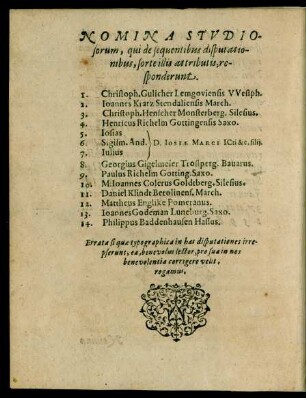 NOMINA STVDIO-
sorum, qui de sequentibus disputatio-
nibus, sorte illis attributis, re-
sponderunt.
1. Christoph. Gulicher Lemgoviensis VVestph.
2. Ioannes Kratz Stendaliensis March.
3. Christoph. Henscher Monsterberg. Silesius.
4. Henricus Richelm Gottingensis Saxo.
5. Iosias
6. Sigism. And. D. IOSIÆ MARCI ICti &c. filij.
7. Iulius
8. Georgius Gigelmeier Trosperg. Bavarus.
9. Paulus Richelm Gotting. Saxo.
10. M. Ioannes Colerus Goldeberg. Silesius.
11. Daniel Klinde Berolinens. March.
12. Mattheus Englike Pomeranus.
13. Ioannes Godeman Luneburg. Saxo.
14. Philippus Baddenhausen Hassus.
Errata si qua typographica in has disputationes irre-
pserunt, ea, benevolus lector, pro sua in nos
benevolentia corrigere velit,
rogamus.